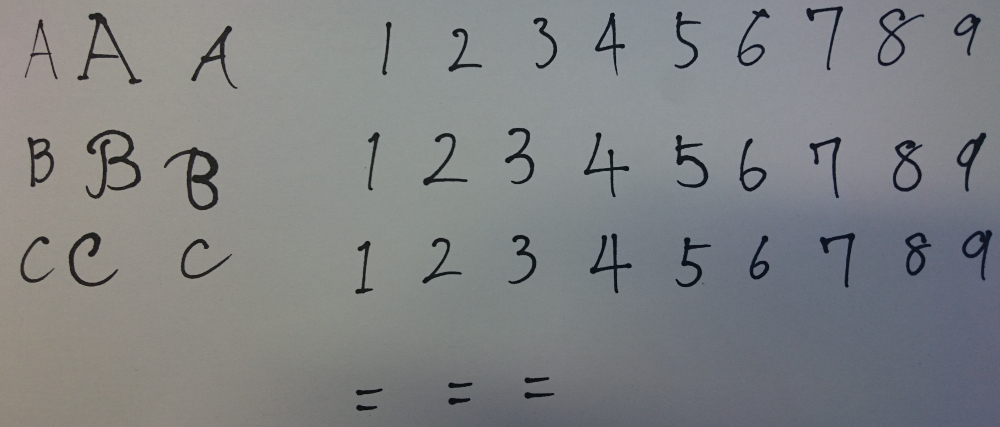 A A A 1 2 3 4 5 6 7 8 9
B B B 1 2 3 4 5 6 7 8 9
C C C 1 2 3 4 5 6 7 8 9
= = =